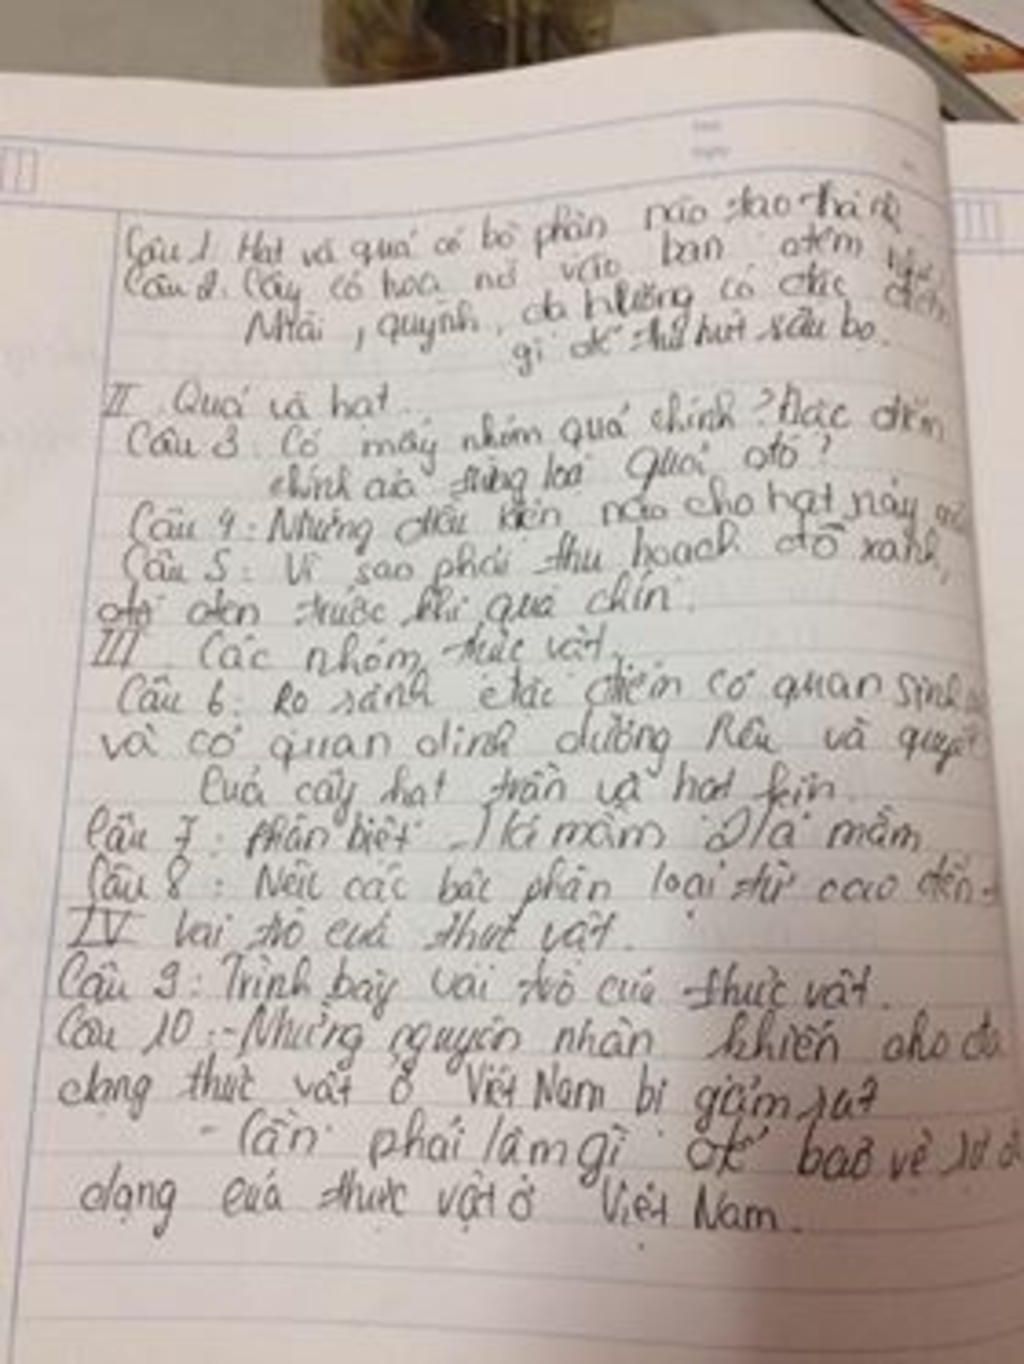 Câu 1. Hạt và quả có bộ phận nào tạo thành
Câu 2. Cây có hoa nở vào ban đêm như
Nhài, quỳnh, dạ hương có đặc điểm
gì để thu hút sâu bọ.
II. Quả và hạt.
Câu 3. Có mấy nhóm quả chính? Đặc điểm
chính của từng loại quả đó?
Câu 4: Những điều kiện nào cho hạt nảy
Câu 5: Vì sao phải thu hoạch đỗ xanh,
đỗ đen trước khi quả chín.
III. Các nhóm thực vật.
Câu 6: So sánh đặc điểm cơ quan sinh
và cơ quan dinh dưỡng Rêu và quyết
Của cây hạt trần và hạt kín.
Câu 7: phân biệt 1 lá mầm 2 lá mầm
Câu 8: Nêu các bậc phân loại từ cao đến
IV Vai trò của thực vật.
Câu 9: Trình bày vai trò của thực vật.
Câu 10: - Những nguyên nhân khiến cho đa
dạng thực vật ở Việt Nam bị giảm sút
- Cần phải làm gì để bảo vệ sự đa
dạng của thực vật ở Việt Nam.